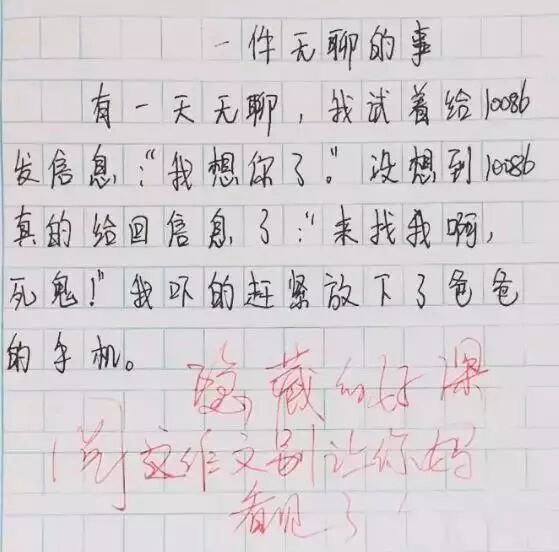 一件无聊的事
有一天无聊，我试着给10086
发信息："我想你了。"没想到10086
真的给回信息了："来找我啊，
死鬼！"我吓的赶紧放下了爸爸
的手机。
隐藏的好深
这作文别让你妈
看见了！